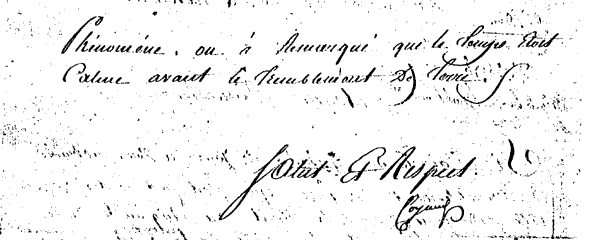 Phénoméne. on à Remarqué que le Temps Etoit
Calme avant le tremblement De Terre ./.
Salut Et Respect